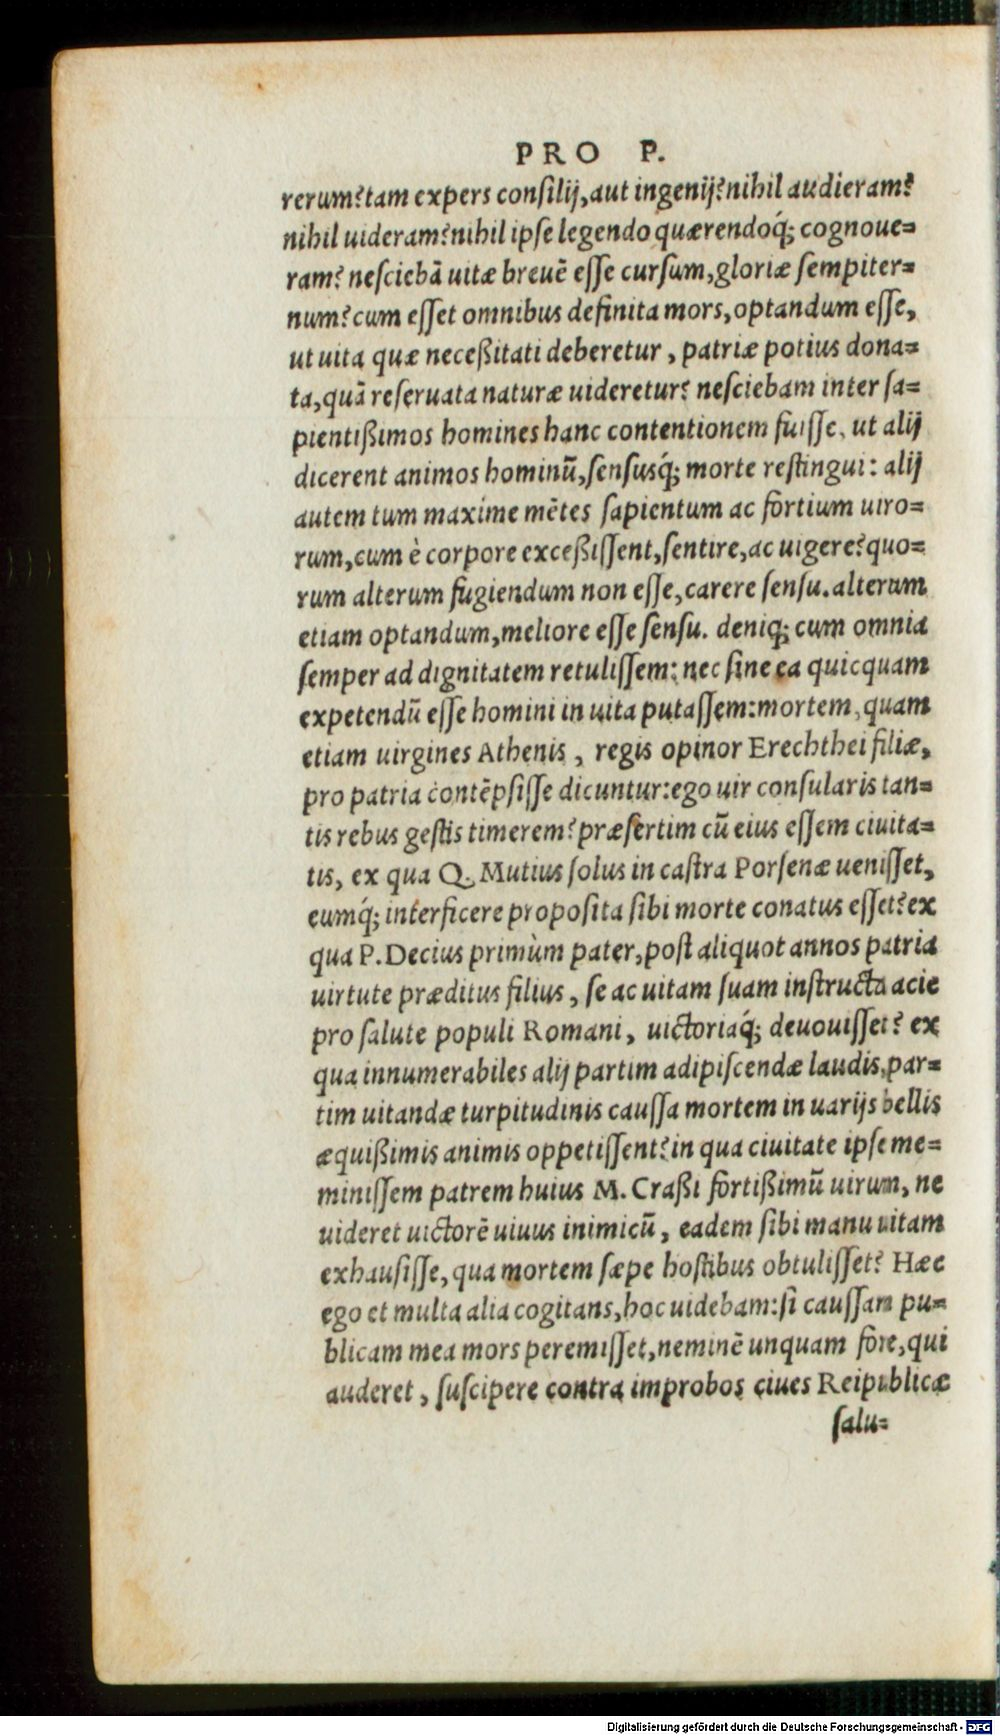 PRO P.
rerum? tam expers consilij, aut ingenij? nihil audieram?
nihil uideram? nihil ipse legendo quærendoq́; cognoue=
ram? nesciebā uitæ breuē esse cursum, gloriæ sempiter=
num? cum esset omnibus definita mors, optandum esse,
ut uita quæ neceßitati deberetur, patriæ potius dona=
ta, quā reseruata naturæ uideretur? nesciebam inter sa=
pientißimos homines hanc contentionem fuisse, ut alij
dicerent animos hominū, sensusq́; morte restingui: alij
autem tum maxime mētes sapientum ac fortium uiro=
rum, cum è corpore exceßissent, sentire, ac uigere? quo=
rum alterum fugiendum non esse, carere sensu. alterum
etiam optandum, meliore esse sensu. deniq; cum omnia
semper ad dignitatem retulissem: nec sine ea quicquam
expetendū esse homini in uita putassem: mortem, quam
etiam uirgines Athenis, regis opinor Erechthei filiæ,
pro patria contēpsisse dicuntur: ego uir consularis tan=
tis rebus gestis timerem? præsertim cū eius essem ciuita=
tis, ex qua Q. Mutius solus in castra Porsenæ uenisset,
eumq́; interficere proposita sibi morte conatus esset? ex
qua P. Decius primùm pater, post aliquot annos patria
uirtute præditus filius, se ac uitam suam instructa acie
pro salute populi Romani, uictoriaq́; deuouisset? ex
qua innumerabiles alij partim adipiscendæ laudis, par=
tim uitandæ turpitudinis caussa mortem in uarijs bellis
æquißimis animis oppetissent? in qua ciuitate ipse me=
minissem patrem huius M. Craßi fortißimū uirum, ne
uideret uictorē uiuus inimicū, eadem sibi manu uitam
exhausisse, qua mortem sæpe hostibus obtulisset? Hæc
ego et multa alia cogitans, hoc uidebam: si caussam pu=
blicam mea mors peremisset, neminē unquam fore, qui
auderet, suscipere contra improbos ciues Reipublicæ
salu=
Digitalisierung gefördert durch die Deutsche Forschungsgemeinschaft - DFG